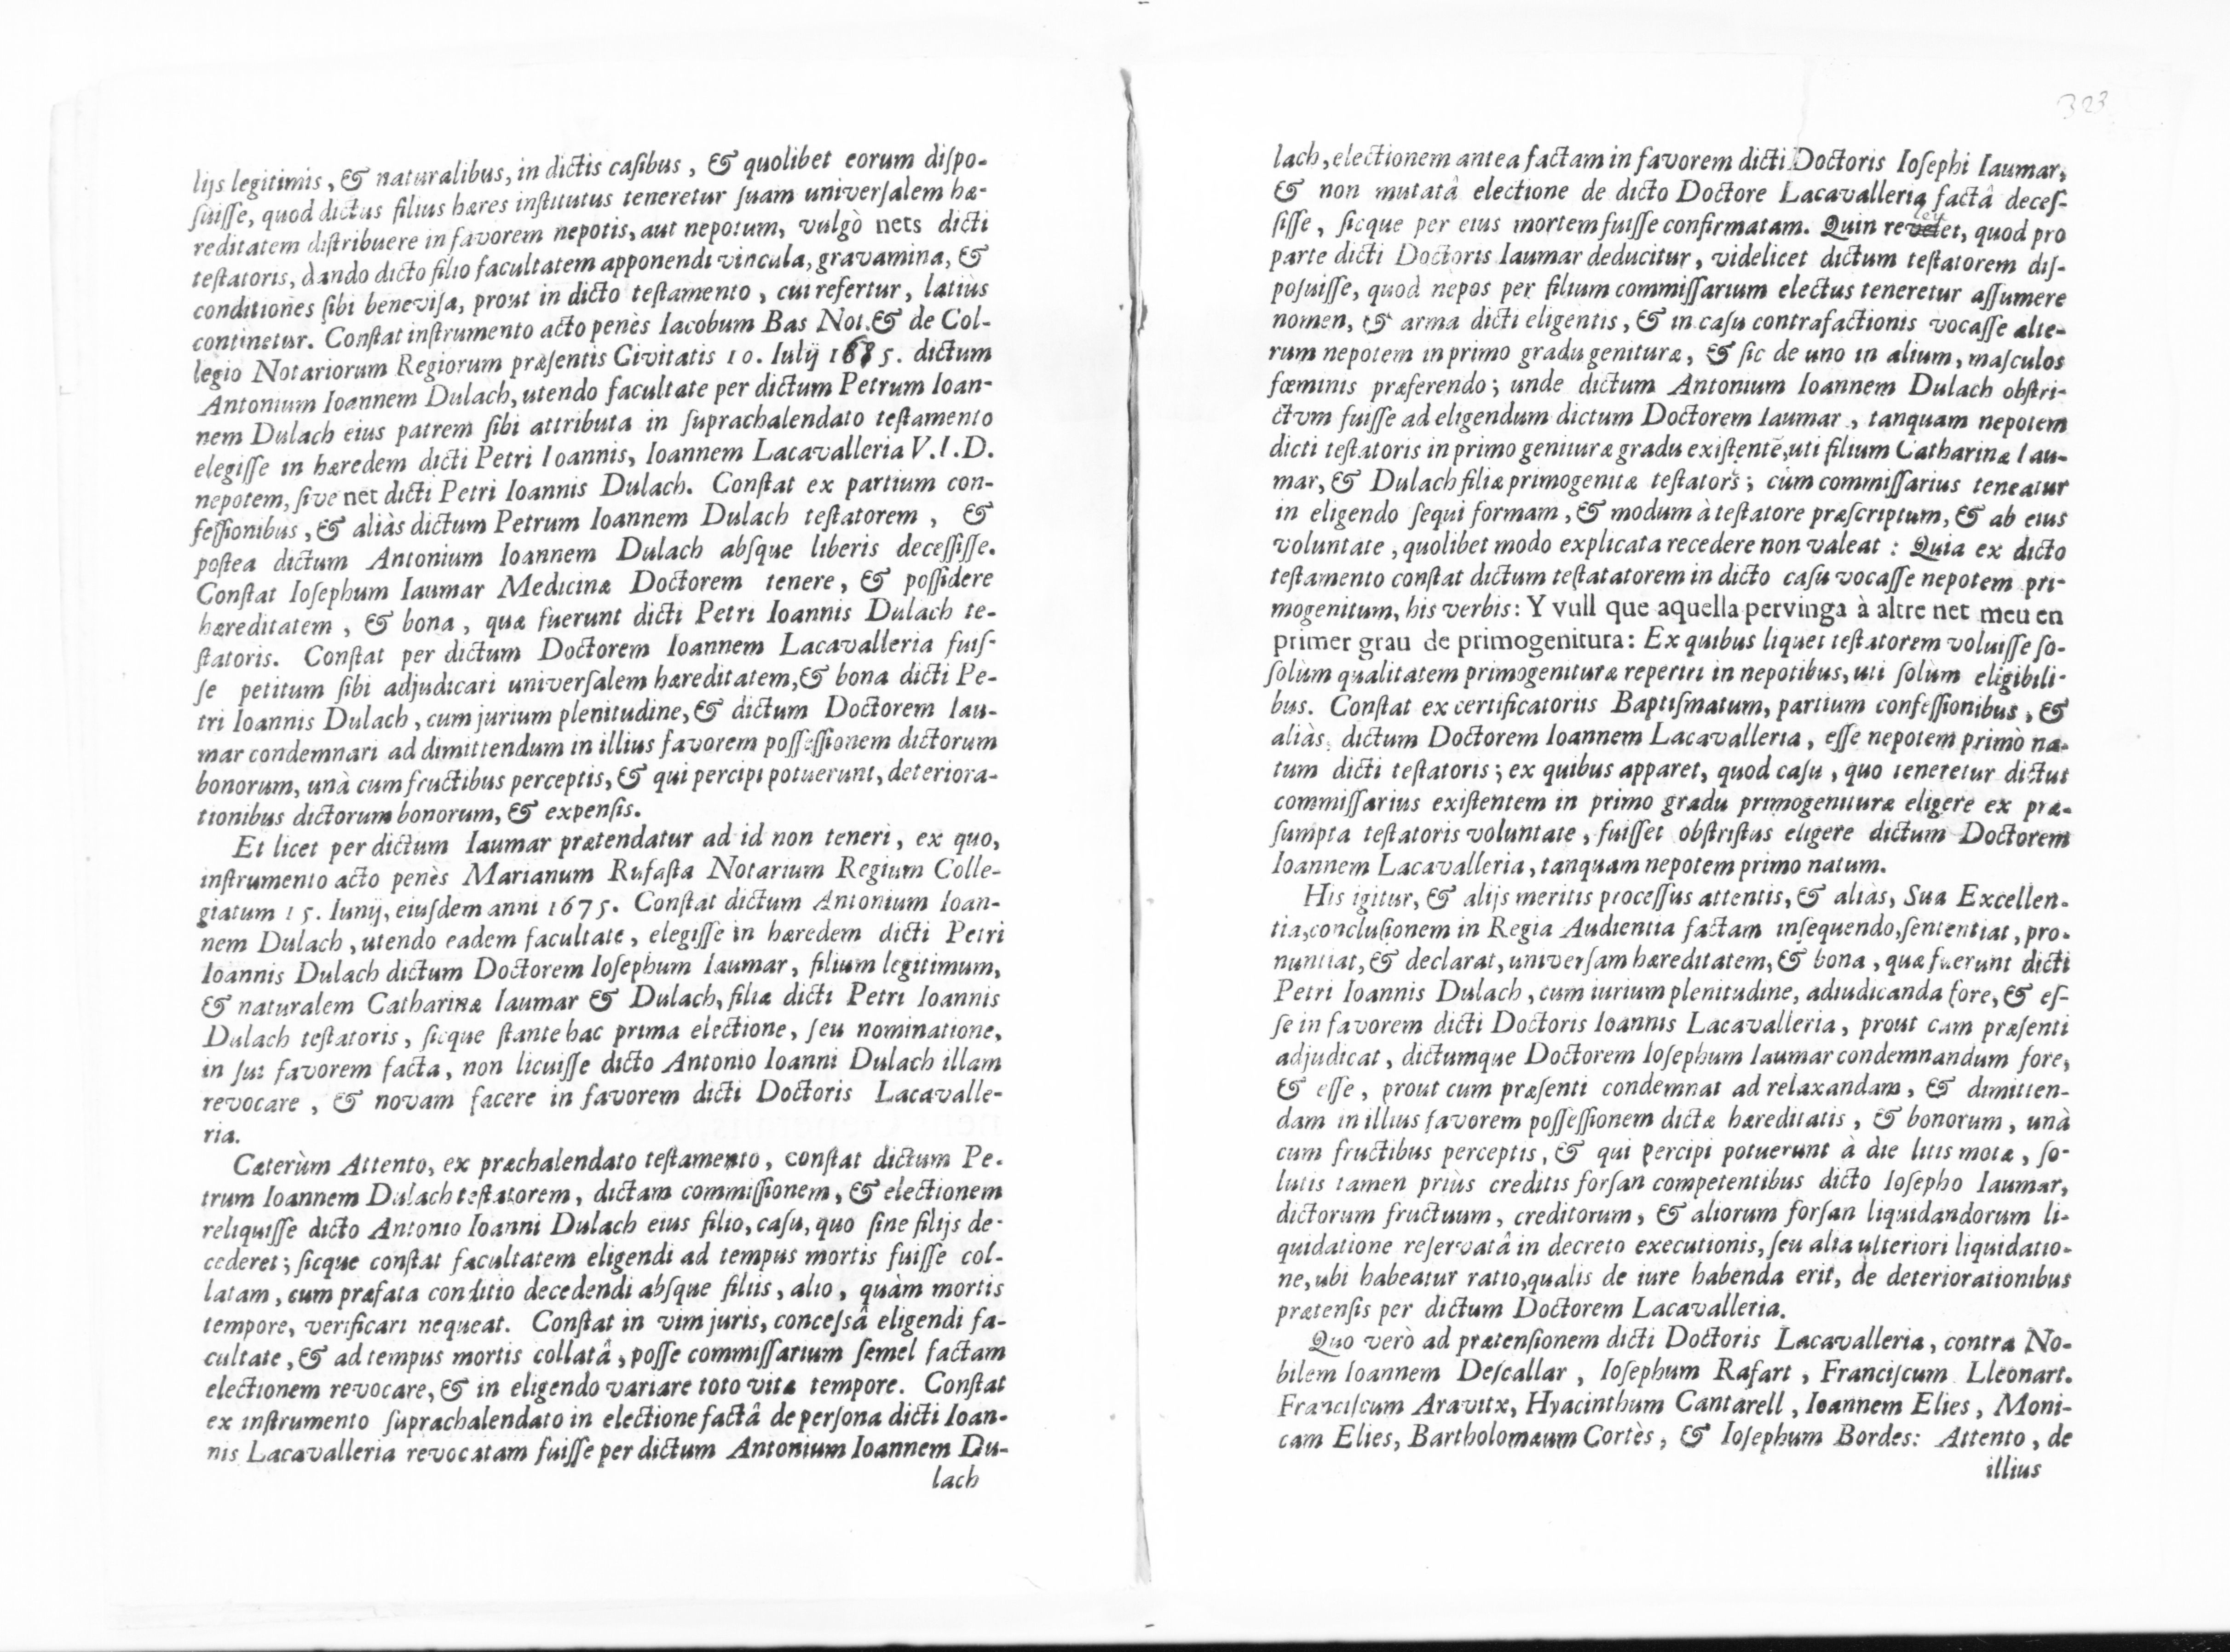 lijs legitimis, & naturalibus, in dictis casibus, & quolibet eorum dispo-
suisse, quod dictus filius hæres institutus teneretur suam universalem hæ-
reditatem distribuere in favorem nepotis, aut nepotum, vulgò nets dicti
testatoris, dando dicto filio facultatem apponendi vincula, gravamina, &
conditiones sibi benevisa, prout in dicto testamento, cui refertur, latiùs
continetur. Constat instrumento acto penès Iacobum Bas Not. & de Col-
legio Notariorum Regiorum præsentis Civitatis 10. Iulij 1685. dictum
Antonium Ioannem Dulach, utendo facultate per dictum Petrum Ioan-
nem Dulach eius patrem sibi attributa in suprachalendato testamento
elegisse in hæredem dicti Petri Ioannis, Ioannem Lacavalleria V.I.D.
nepotem, sive net dicti Petri Ioannis Dulach. Constat ex partium con-
fessionibus, & aliàs dictum Petrum Ioannem Dulach testatorem, &
postea dictum Antonium Ioannem Dulach absque liberis decessisse.
Constat Iosephum Iaumar Medicinæ Doctorem tenere, & possidere
hæreditatem, & bona, quæ fuerunt dicti Petri Ioannis Dulach te-
statoris. Constat per dictum Doctorem Ioannem Lacavalleria fuis-
se petitum sibi adjudicari universalem hæreditatem, & bona dicti Pe-
tri Ioannis Dulach, cum jurium plenitudine, & dictum Doctorem Iau-
mar condemnari ad dimittendum in illius favorem possessionem dictorum
bonorum, unà cum fructibus perceptis, & qui percipi potuerunt, deteriora-
tionibus dictorum bonorum, & expensis.
Et licet per dictum Iaumar prætendatur ad id non teneri, ex quo,
instrumento acto penès Marianum Rufasta Notarium Regium Colle-
giatum 15. Iunij, eiusdem anni 1675. Constat dictum Antonium Ioan-
nem Dulach, utendo eadem facultate, elegisse in hæredem dicti Petri
Ioannis Dulach dictum Doctorem Iosephum Iaumar, filium legitimum,
& naturalem Catharinæ Iaumar & Dulach, filiæ dicti Petri Ioannis
Dulach testatoris, sicque stante hac prima electione, seu nominatione,
in sui favorem facta, non licuisse dicto Antonio Ioanni Dulach illam
revocare, & novam facere in favorem dicti Doctoris Lacavalle-
ria.
Cæterùm Attento, ex præchalendato testamento, constat dictum Pe-
trum Ioannem Dulach testatorem, dictam commissionem, & electionem
reliquisse dicto Antonio Ioanni Dulach eius filio, casu, quo sine filijs de-
cederet; sicque constat facultatem eligendi ad tempus mortis fuisse col-
latam, cum præfata conditio decedendi absque filiis, alio, quàm mortis
tempore, verificari nequeat. Constat in vim juris, concessâ eligendi fa-
cultate, & ad tempus mortis collatâ, posse commissarium semel factam
electionem revocare, & in eligendo variare toto vitæ tempore. Constat
ex instrumento suprachalendato in electione factâ de persona dicti Ioan-
nis Lacavalleria revocatam fuisse per dictum Antonium Ioannem Du-
lach
323
lach, electionem antea factam in favorem dicti Doctoris Iosephi Iaumar,
& non mutatâ electione de dicto Doctore Lacavalleria factâ deces-
sisse, sicque per eius mortem fuisse confirmatam. Quin relevet, quod pro
parte dicti Doctoris Iaumar deducitur, videlicet dictum testatorem dis-
posuisse, quod nepos per filium commissarium electus teneretur assumere
nomen, & arma dicti eligentis, & in casu contrafactionis vocasse alte-
rum nepotem in primo gradu genituræ, & sic de uno in alium, masculos
fœminis præferendo; unde dictum Antonium Ioannem Dulach obstri-
ctvm fuisse ad eligendum dictum Doctorem Iaumar, tanquam nepotem
dicti testatoris in primo genituræ gradu existentē, uti filium Catharinæ Iau-
mar, & Dulach filiæ primogenitæ testators; cùm commissarius teneatur
in eligendo sequi formam, & modum à testatore præscriptum, & ab eius
voluntate, quolibet modo explicata recedere non valeat: Quia ex dicto
testamento constat dictum testatatorem in dicto casu vocasse nepotem pri-
mogenitum, his verbis: Y vull que aquella pervinga à altre net meu en
primer grau de primogenitura: Ex quibus liquet testatorem voluisse so-
solùm qualitatem primogenituræ reperiri in nepotibus, uti solùm eligibili-
bus. Constat ex certificatoriis Baptismatum, partium confessionibus, &
aliàs, dictum Doctorem Ioannem Lacavalleria, esse nepotem primò na-
tum dicti testatoris; ex quibus apparet, quod casu, quo teneretur dictus
commissarius existentem in primo gradu primogenituræ eligere ex præ-
sumpta testatoris voluntate, fuisset obstristus eligere dictum Doctorem
Ioannem Lacavalleria, tanquam nepotem primo natum.
His igitur, & alijs meritis processus attentis, & aliàs, Sua Excellen-
tia, conclusionem in Regia Audientia factam insequendo, sententiat, pro-
nuntiat, & declarat, universam hæreditatem, & bona, quæ fuerunt dicti
Petri Ioannis Dulach, cum iurium plenitudine, adiudicanda fore, & es-
se in favorem dicti Doctoris Ioannis Lacavalleria, prout cum præsenti
adjudicat, dictumque Doctorem Iosephum Iaumar condemnandum fore,
& esse, prout cum præsenti condemnat ad relaxandam, & dimitten-
dam in illius favorem possessionem dictæ hæreditatis, & bonorum, unà
cum fructibus perceptis, & qui percipi potuerunt à die litis motæ, so-
lutis tamen priùs creditis forsan competentibus dicto Iosepho Iaumar,
dictorum fructuum, creditorum, & aliorum forsan liquidandorum li-
quidatione reservatâ in decreto executionis, seu alia ulteriori liquidatio-
ne, ubi habeatur ratio, qualis de iure habenda erit, de deteriorationibus
prætensis per dictum Doctorem Lacavalleria.
Quo verò ad prætensionem dicti Doctoris Lacavalleria, contra No-
bilem Ioannem Descallar, Iosephum Rafart, Franciscum Lleonart.
Franciscum Aravitx, Hyacinthum Cantarell, Ioannem Elies, Moni-
cam Elies, Bartholomæum Cortès, & Iosephum Bordes: Attento, de
illius